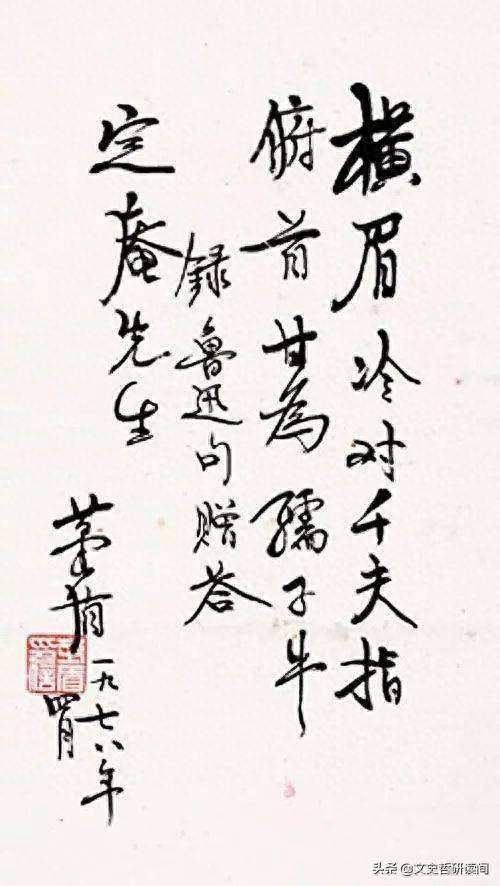 横眉冷对千夫指
俯首甘為孺子牛
録魯迅句赠荅
定庵先生
茅盾一九七八年
四月
头条 @文史哲研读间